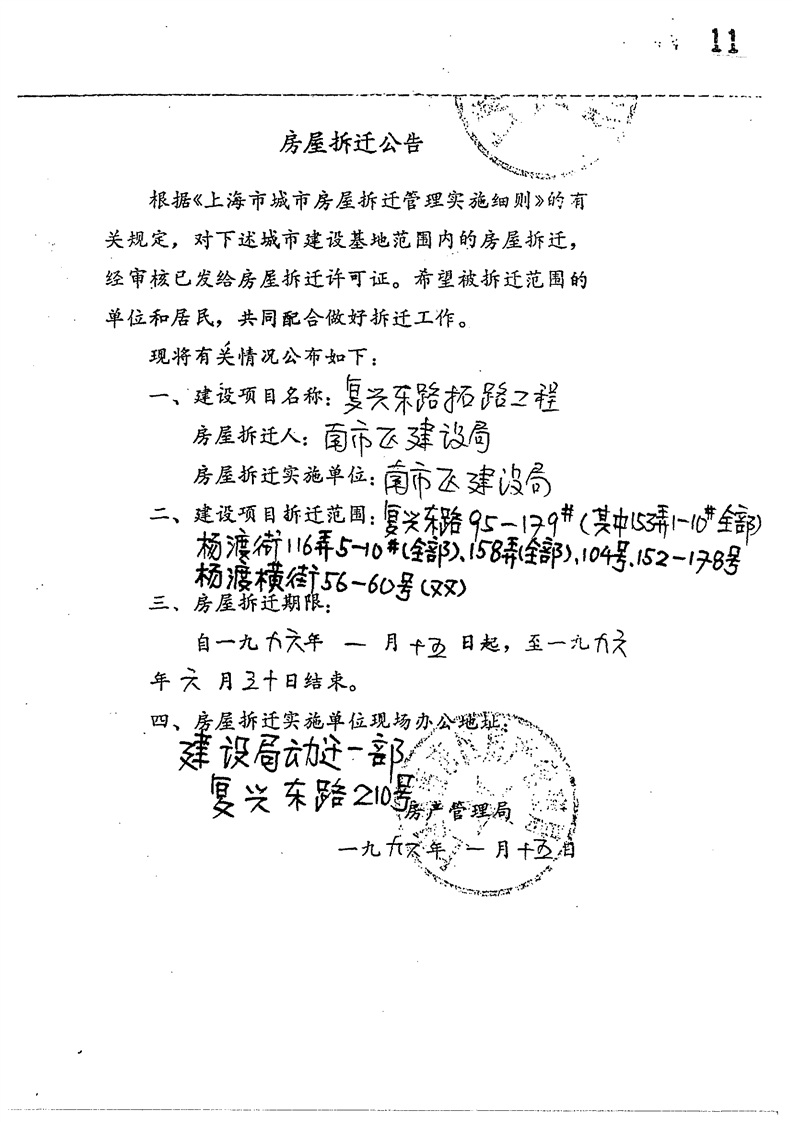 11
房屋拆迁公告
根据《上海市城市房屋拆迁管理实施细则》的有
关规定，对下述城市建设基地范围内的房屋拆迁，
经审核已发给房屋拆迁许可证。希望被拆迁范围的
单位和居民，共同配合做好拆迁工作。
现将有关情况公布如下：
一、建设项目名称：复兴东路拓路工程
房屋拆迁人：南市区建设局
房屋拆迁实施单位：南市区建设局
二、建设项目拆迁范围：复兴东路95-179#(其中153弄1-10#全部)
杨渡街116弄5-10#(全部)、158弄(全部)、104号、152-178号
杨渡横街56-60号(双)
三、房屋拆迁期限：
自一九九六年 一 月十五日起，至一九九六
年 六 月三十日结束。
四、房屋拆迁实施单位现场办公地址：
建设局动迁一部
复兴东路210号
房产管理局
一九九六年 一 月十五日